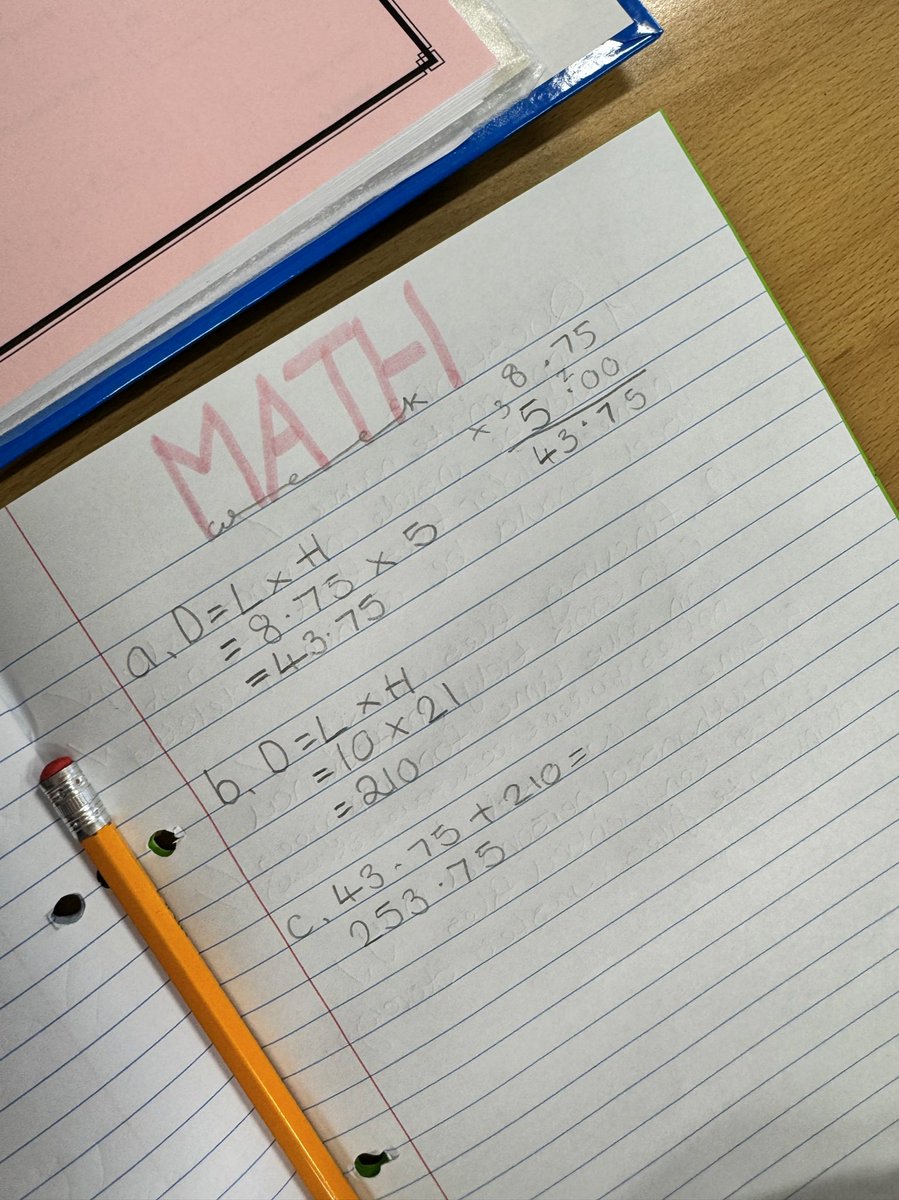 MATH
week
8.75
x 5.00
43.75
a, D=L x H
= 8.75 x 5
=43.75
b, D=L x H
=10 x 21
= 210
c. 43.75 + 210 =
253.75